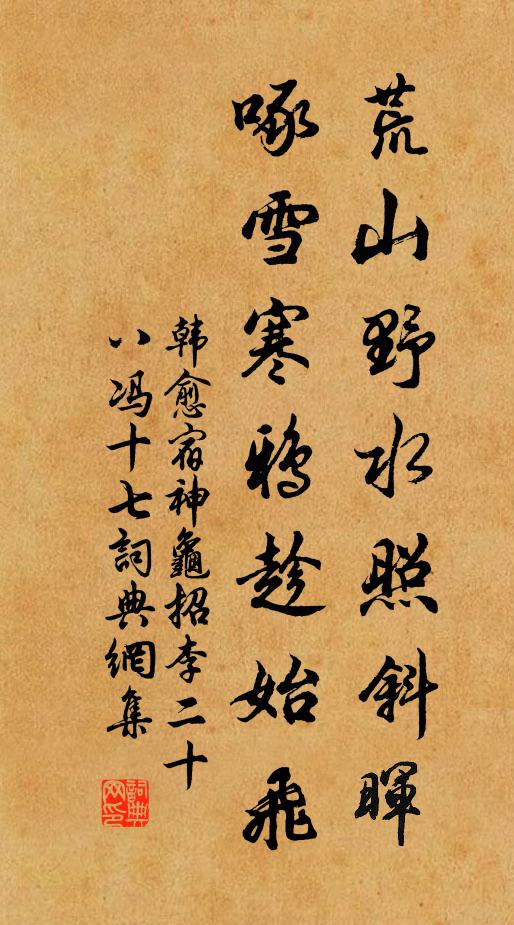 荒山野水照斜暉
啄雪寒鴉趁始飛
韩愈宿神龜招李二十
八冯十七詞典網集
詞典网印